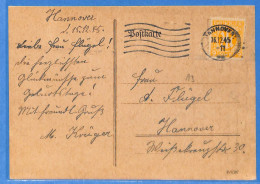 Hannover
d. 15.12.45.
Liebe Frau Flügel!
Die herzlichsten
Glückwünsche zum
Geburtstage!
Mit freundl. Gruß
M. Krüger
Postkarte
HANNOVER
16.12.45
-11
Frau
A. Flügel
Hannover
30.